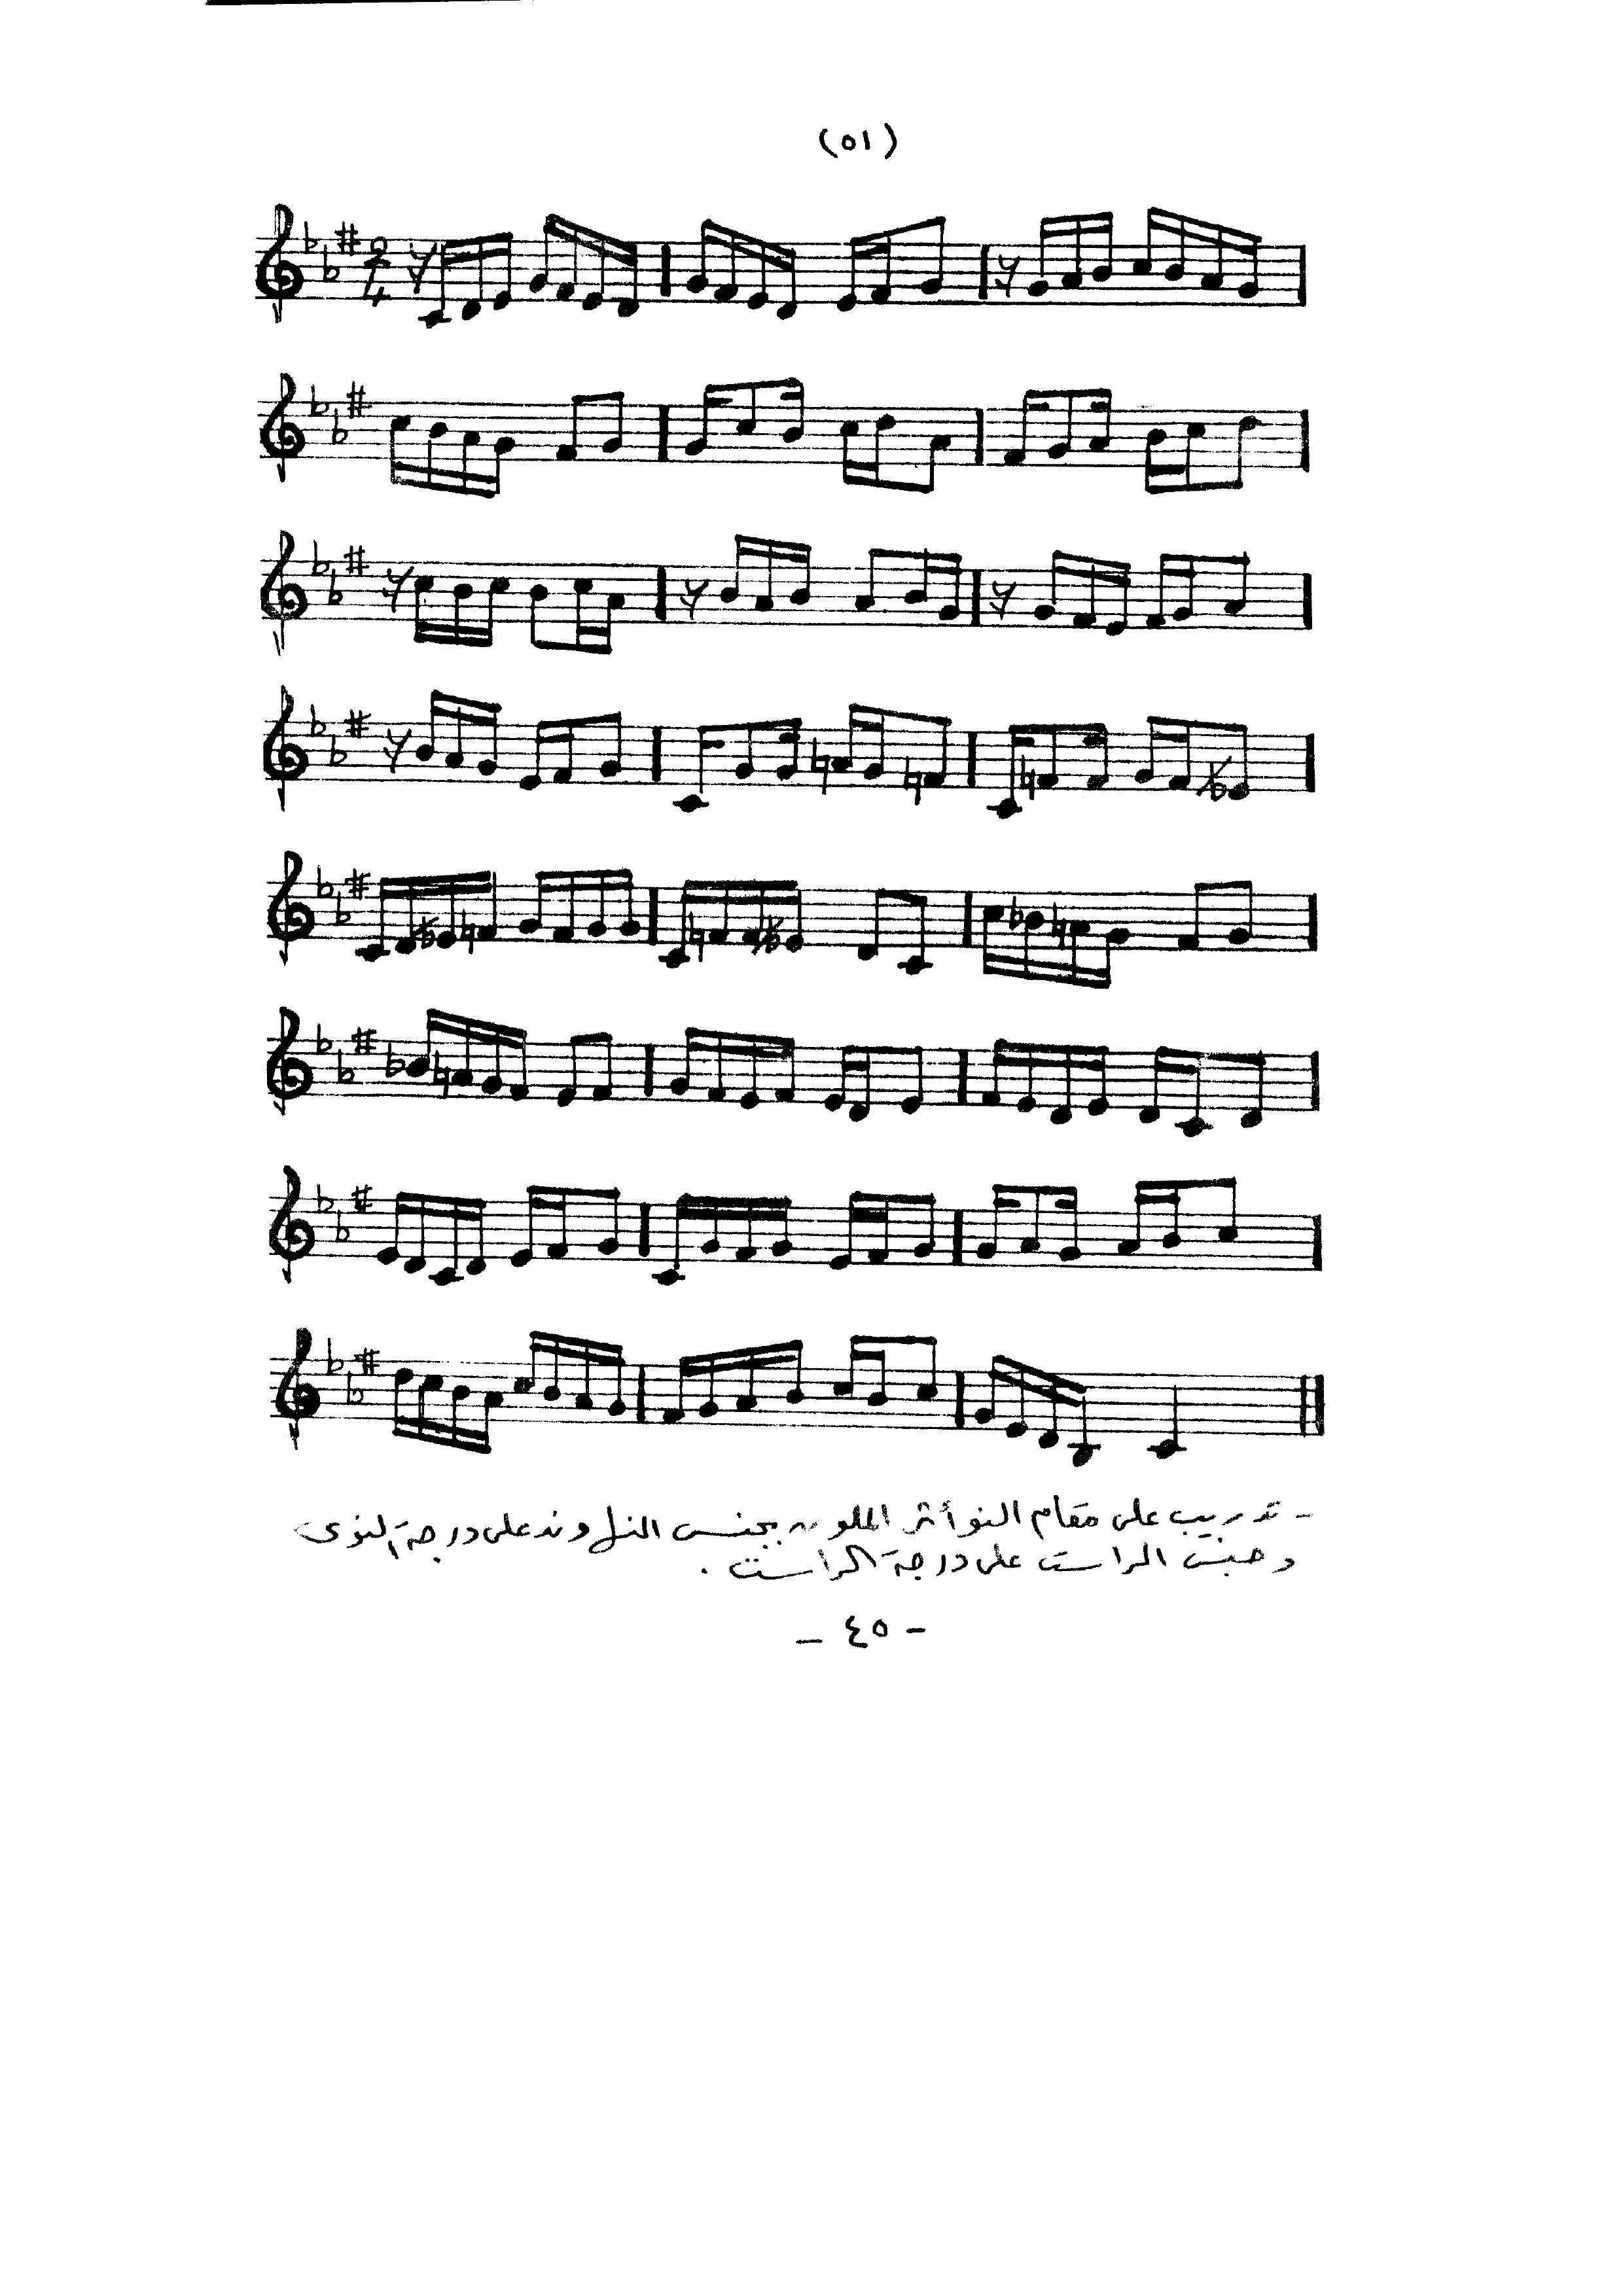 (٥١)
2
4
- تدريب على مقام النوأثر الملون بجنس النهاوند على درجة النوى
وجنس الراست على درجة الراست .
- ٤٥ -